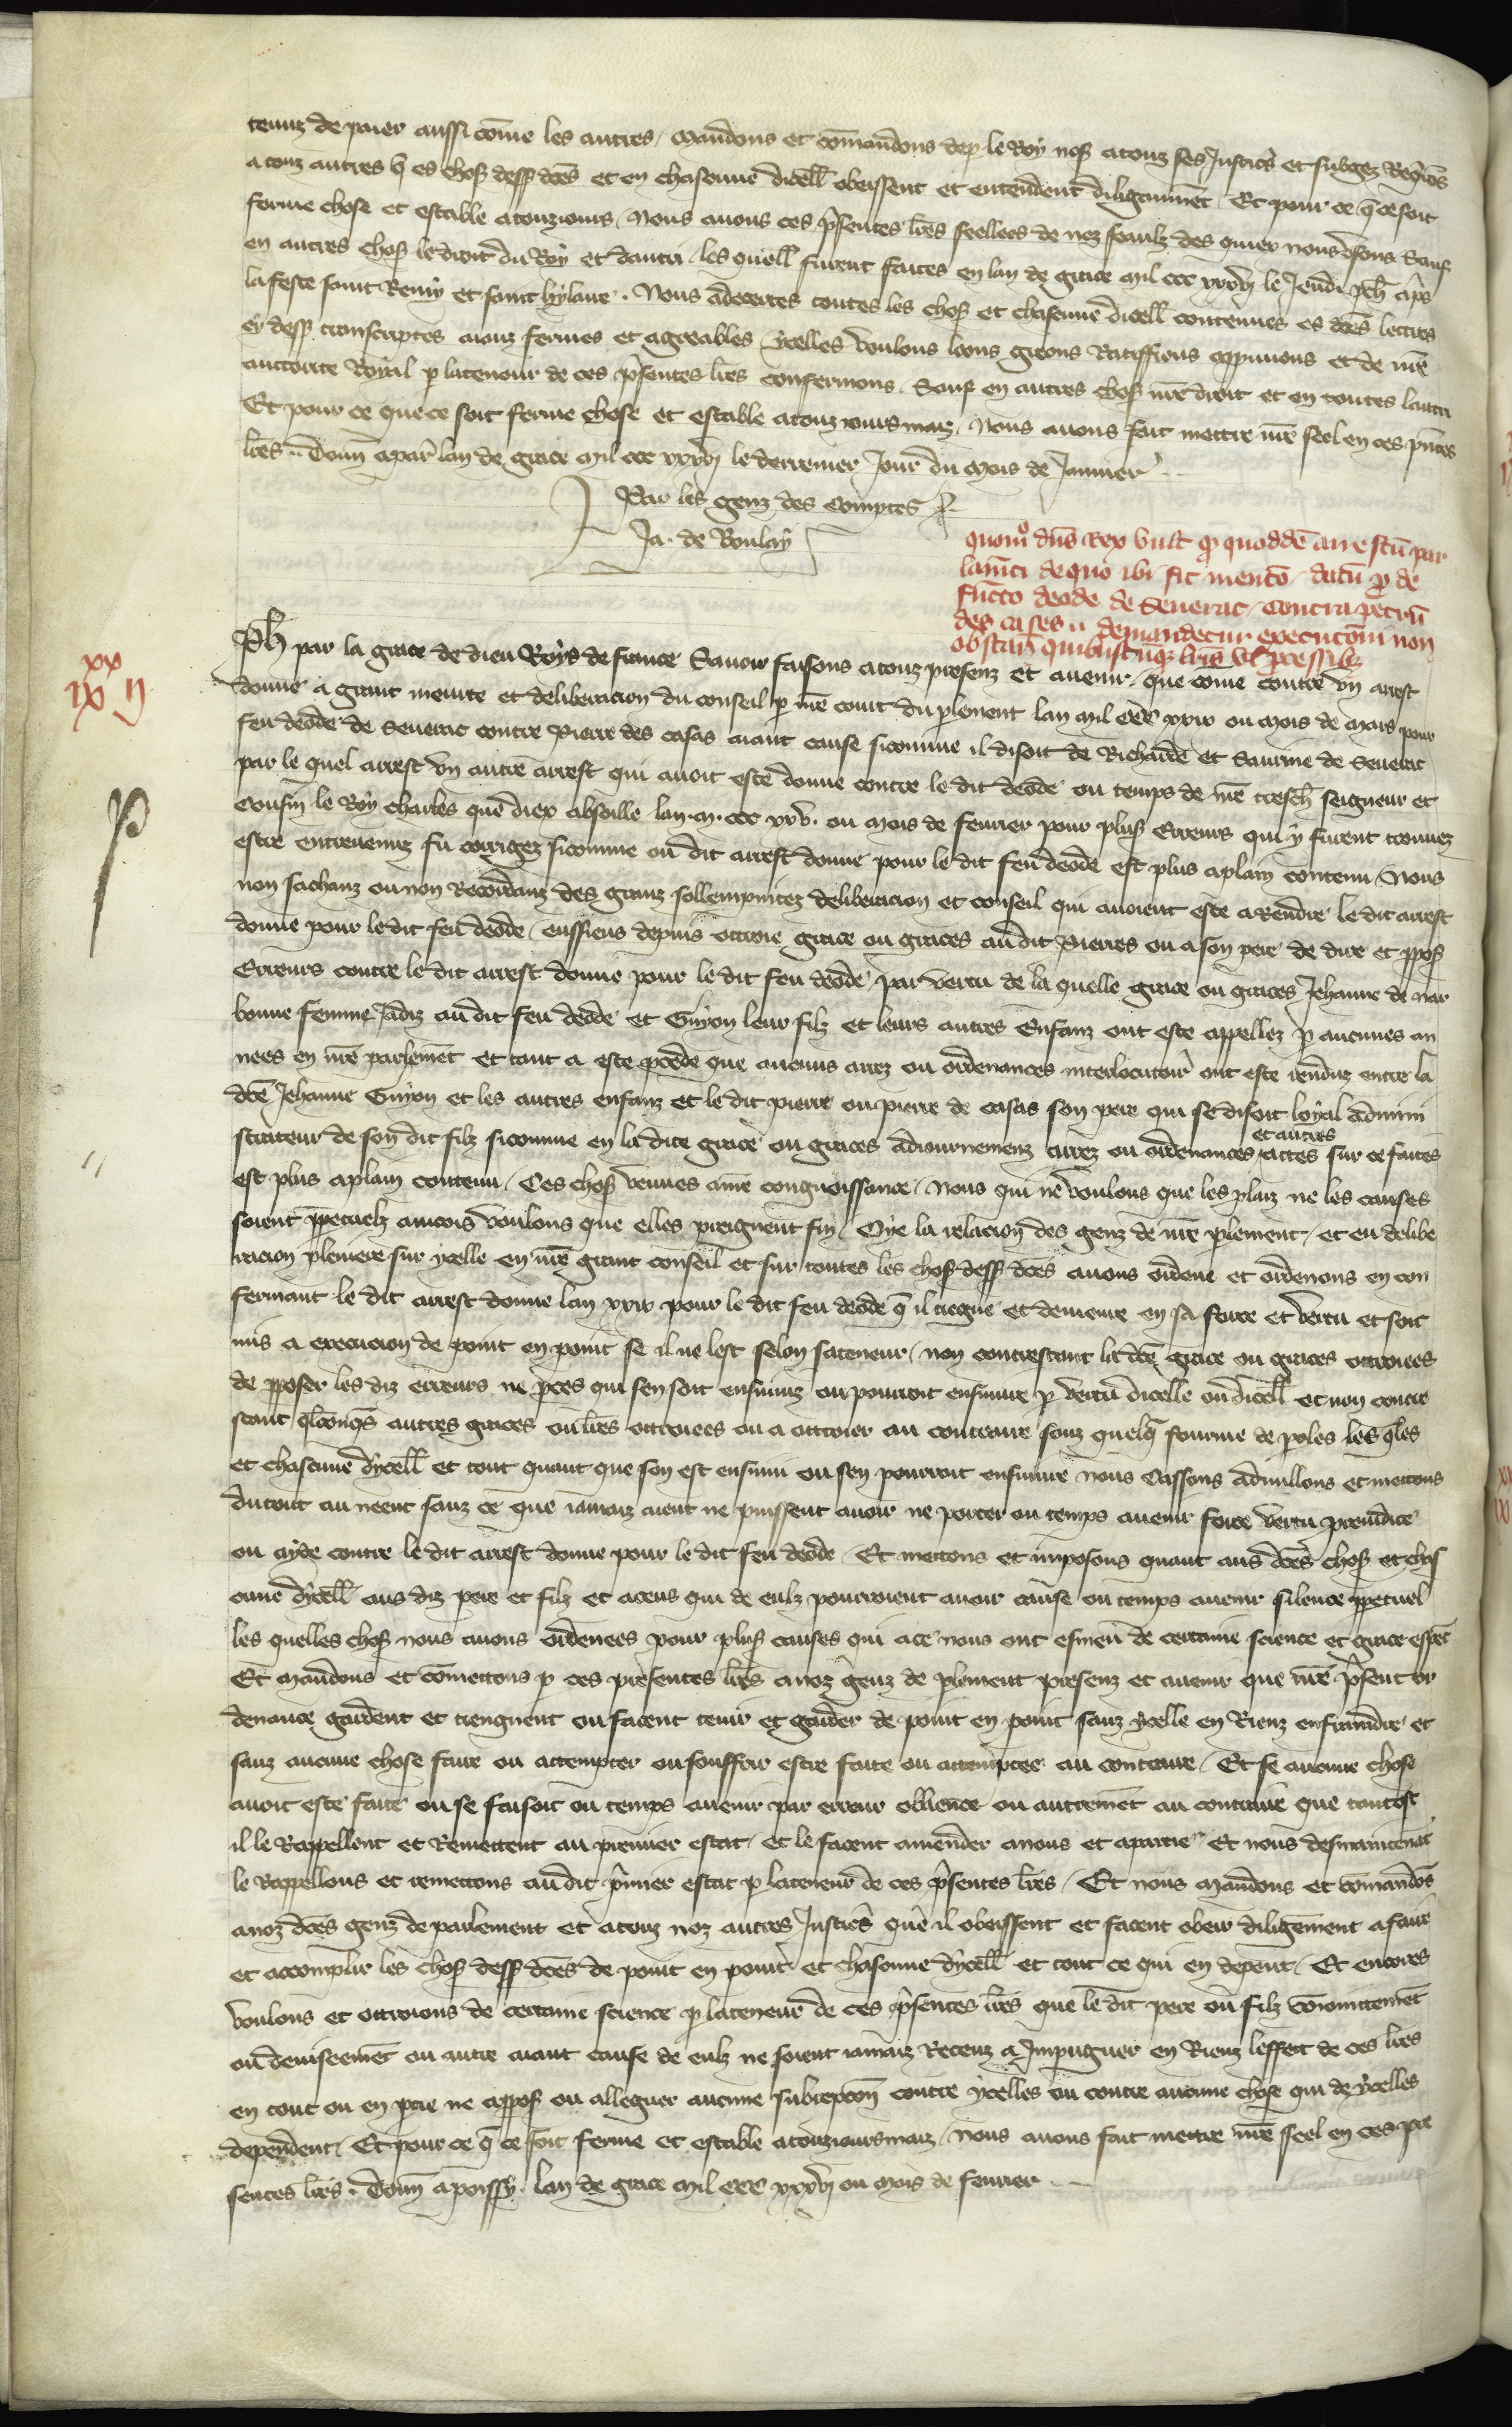 tenuz de paier aussi cōme les autres / Mandons et cōmandons dep le Roy nos̄ a touz ses Justic̄s et subgez Req̄rōs
a touz autres q̄ es choses dess dc̄es et en chascune dicell obeissent et entendent diligaument / Et pour ce q̄ ce soit
ferme chose et estable a touziours / Nous auons ces p̄sentes lr̄es seellees de noz seaulz des quiex nous vsons Sauf
en autres chos̄ le droit du Roy et dautri / les quell furent faites en lan de grace mil ccc xxxvij le Jeudi p̄ch ap̄s
la feste saint Remy et saint hylaire . Nous adecertes toutes les chos̄ et chascune dicell contenues es dc̄es lettres
cy dess transcriptes aianz fermes et agreables ycelles voulons loons greons Ratiffions approuuons et de nr̄e
auctorite Royal p la teneur de ces p̄sentes lr̄es confermons . Sauf en autres chos̄ nr̄e droit et en toutes lautri
Et pour ce que ce soit ferme chose et estable a touz iours maiz / Nous auons fait mettre nr̄e seel en ces pn̄tes
lr̄es . Donn̄ a par̄ lan de grace mil ccc xxxvij le derrenier Jour du Mois de Januier
Par les genz des Comptes
Ja . de Boulay
quom̊ dn̄s Rex vult q̄ quoddē arrestū par
lamēti de quo ibi fit mentō datū p̄ de
functo deode de Seuerac / contra petrū
des cases u demandetur executōni non
obstan̄ quibuscūq̄ lr̄is vl p̄cessib̄z
xx
iiij ij
Ph̄ par la grace de dieu Roys de france Sauoir faisons a touz presenz et auenir / que cōme contre vn arrest
donne a grant meurte et deliberacion du conseil p nr̄e court du p̄lement lan mil ccc xxix ou Mois de Mars pour
feu deode de Seuerac contre Pierre des casas aiant cause sicomme il disoit de Richarde et Saurine de Seuerac
par le quel arrest vn autre arrest qui auoit este donne contre le dit deode ou temps de nr̄e tresch̄ seigneur et
cousin le Roy charles que diex absoille lan . M . ccc xxv . ou Mois de feurier pour plus̄ Erreurs qui y furent trouuez
estre entreuenuz fu corrigez sicomme ou dit arrest donne pour le dit feu deode est plus aplain contenu / Nous
non sachanz ou non Recordanz des granz sollempnitez deliberacion et conseil qui auoient este a Rendre le dit arrest
donne pour le dit feu deode / eussiens depuis ottroie grace ou graces au dit Pierres ou a son pere de dire et p̄pos̄
Erreurs contre le dit arrest donne pour le dit feu deode / par vertu de la quelle grace ou graces Jehanne de nar
bonne femme Jadiz au dit feu deode et Guyon leur filz et leurs autres Enfanz ont este appellez p aucunes an
nees en nr̄e parlemēt et tant a este p̄cede que aucuns arrez ou ordenances interlocutoir̄ ont este renduz entre la
dc̄e Jehanne Guyon et les autres enfanz et le dit pierre ou pierre de casas son pere qui se disoit loyal admini
strateur de son dit filz sicomme en la dite grace ou graces adiournemenz arrez ou ordenances et autres actes sur ce faites
est plus aplain contenu / Ces chos̄ venues a nr̄e congnoissance / Nous qui ne voulons que les plaiz ne les causes
soient p̄petuelz aincois voulons que elles preignent fin / Oye la relacion des genz de nr̄e p̄lement / et eu delibe
racion pleniere sur ycelle en nr̄e grant conseil et sur toutes les chos̄ dess dc̄es auons ordene et ordenons en con
fermant le dit arrest donne lan xxix pour le dit feu deode q̄ il tiegne et demeure en sa force et vertu et soit
mis a execucion de point en point se il ne lest selon sa teneur / non contrestant la dc̄e grace ou graces ottroiees
de p̄poser les diz erreurs ne p̄ces qui sen soit ensuiuiz ou pourroit ensuiure p vertu dicelle ou dicell et non contre
stant q̄lconq̄s autres graces ou lr̄es ottroiees ou a ottroier au contraire souz quelq̄ fourme de p̄oles les q̄les
et chascune dycell et tout quant que son est ensuiui ou sen pourroit ensuiure nous Cassons adnullons et mettons
du tout au neent sanz ce que iamaiz aient ne puissent auoir ne porter ou temps auenir force vertu preiudice
ou ayde contre le dit arrest donne pour le dit feu deode / Et mettons et imposons quant aus dc̄es chos̄ et chas
cune dycell aus diz pere et filz et a ceus qui de eulz pourroient auoir cause ou temps auenir silence p̄petuel
les quelles chos̄ nous auons ordenees pour plus̄ causes qui a ce nous ont esmeu de certaine science et grace esp̄cl
Et mandons et cōmettons p ces presentes lr̄es a noz genz de p̄lement presenz et auenir que nr̄e p̄sent or
denance gardent et tiengnent ou facent tenir et garder de point en point sanz ycelle en Rienz enfraindre et
sanz aucune chose faire ou attempter ou souffrir estre faite ou attemptee au contraire / Et se aucune chose
auoit este faite ou se faisoit ou temps auenir par erreur obliance ou autremēt au contraire que tantost
il le Rappellent et Remettent au premier estat / et le facent amender a nous et a partie / Et nous desmaintenāt
le Rappellons et remettons au dit p̄mier estat p la teneur de ces p̄sentes lr̄es / Et nous Mandons et cōmandōs
a noz dc̄es genz de parlement et a touz noz autres Justic̄s que il obeissent et facent obeir diligēment a faire
et accomplir les chos̄ dess dc̄es de point en point et chascune dycell et tout ce qui en depent / Et encores
voulons et ottroions de certaine science p la teneur de ces p̄sentes lr̄es que le dit pere ou filz cōioinctemēt
ou deuiseemēt ou autre aiant cause de eulz ne soient iamaiz Receuz a Impugner en Rienz leffect de ces lr̄es
en tout ou en p̄tie ne oppos̄ ou alleguer aucune subrepcōn contre ycelles ou contre aucune chose qui de ycelles
dependent / Et pour ce q̄ ce soit ferme et estable a touziours maiz / Nous auons fait mettre nr̄e seel en ces pre
sentes lr̄es . Donn̄ a poissy . lan de grace mil ccc xxxvij ou Mois de feurier